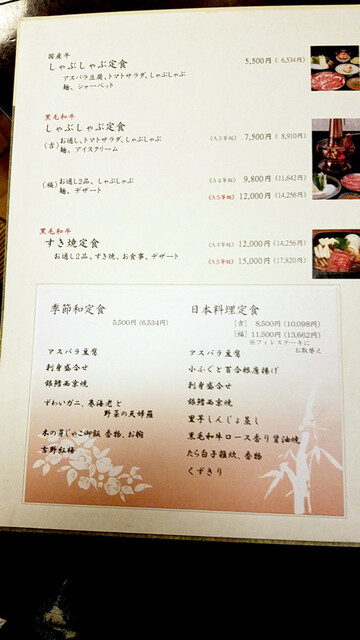 国産牛
しゃぶしゃぶ定食 5,500円 ( 6,534円)
アスパラ豆腐、トマトサラダ、しゃぶしゃぶ
麺、シャーベット
黒毛和牛
しゃぶしゃぶ定食
(吉) お通し、トマトサラダ、しゃぶしゃぶ (A3等級) 7,500円 ( 8,910円)
麺、アイスクリーム
(福) お通し2品、しゃぶしゃぶ (A4等級) 9,800円 (11,642円)
麺、デザート (A5等級) 12,000円 (14,256円)
黒毛和牛
すき焼定食 (A4等級) 12,000円 (14,256円)
お通し2品、すき焼、お食事、デザート (A5等級) 15,000円 (17,820円)
季節和定食
5,500円 (6,534円)
アスパラ豆腐
刺身盛合せ
銀鱈西京焼
ずわいガニ、巻海老と
野菜の天婦羅
木の芽じゃこ御飯 香物、お椀
吉野紅梅
日本料理定食
[吉] 8,500円 (10,098円)
[福] 11,500円 (13,662円)
※フィレステーキに
お取替え
アスパラ豆腐
小ふぐと百合根唐揚げ
刺身盛合せ
銀鱈西京焼
里芋しんじょ蒸し
黒毛和牛ロース香り醤油焼
たら白子雑炊、香物
くずきり